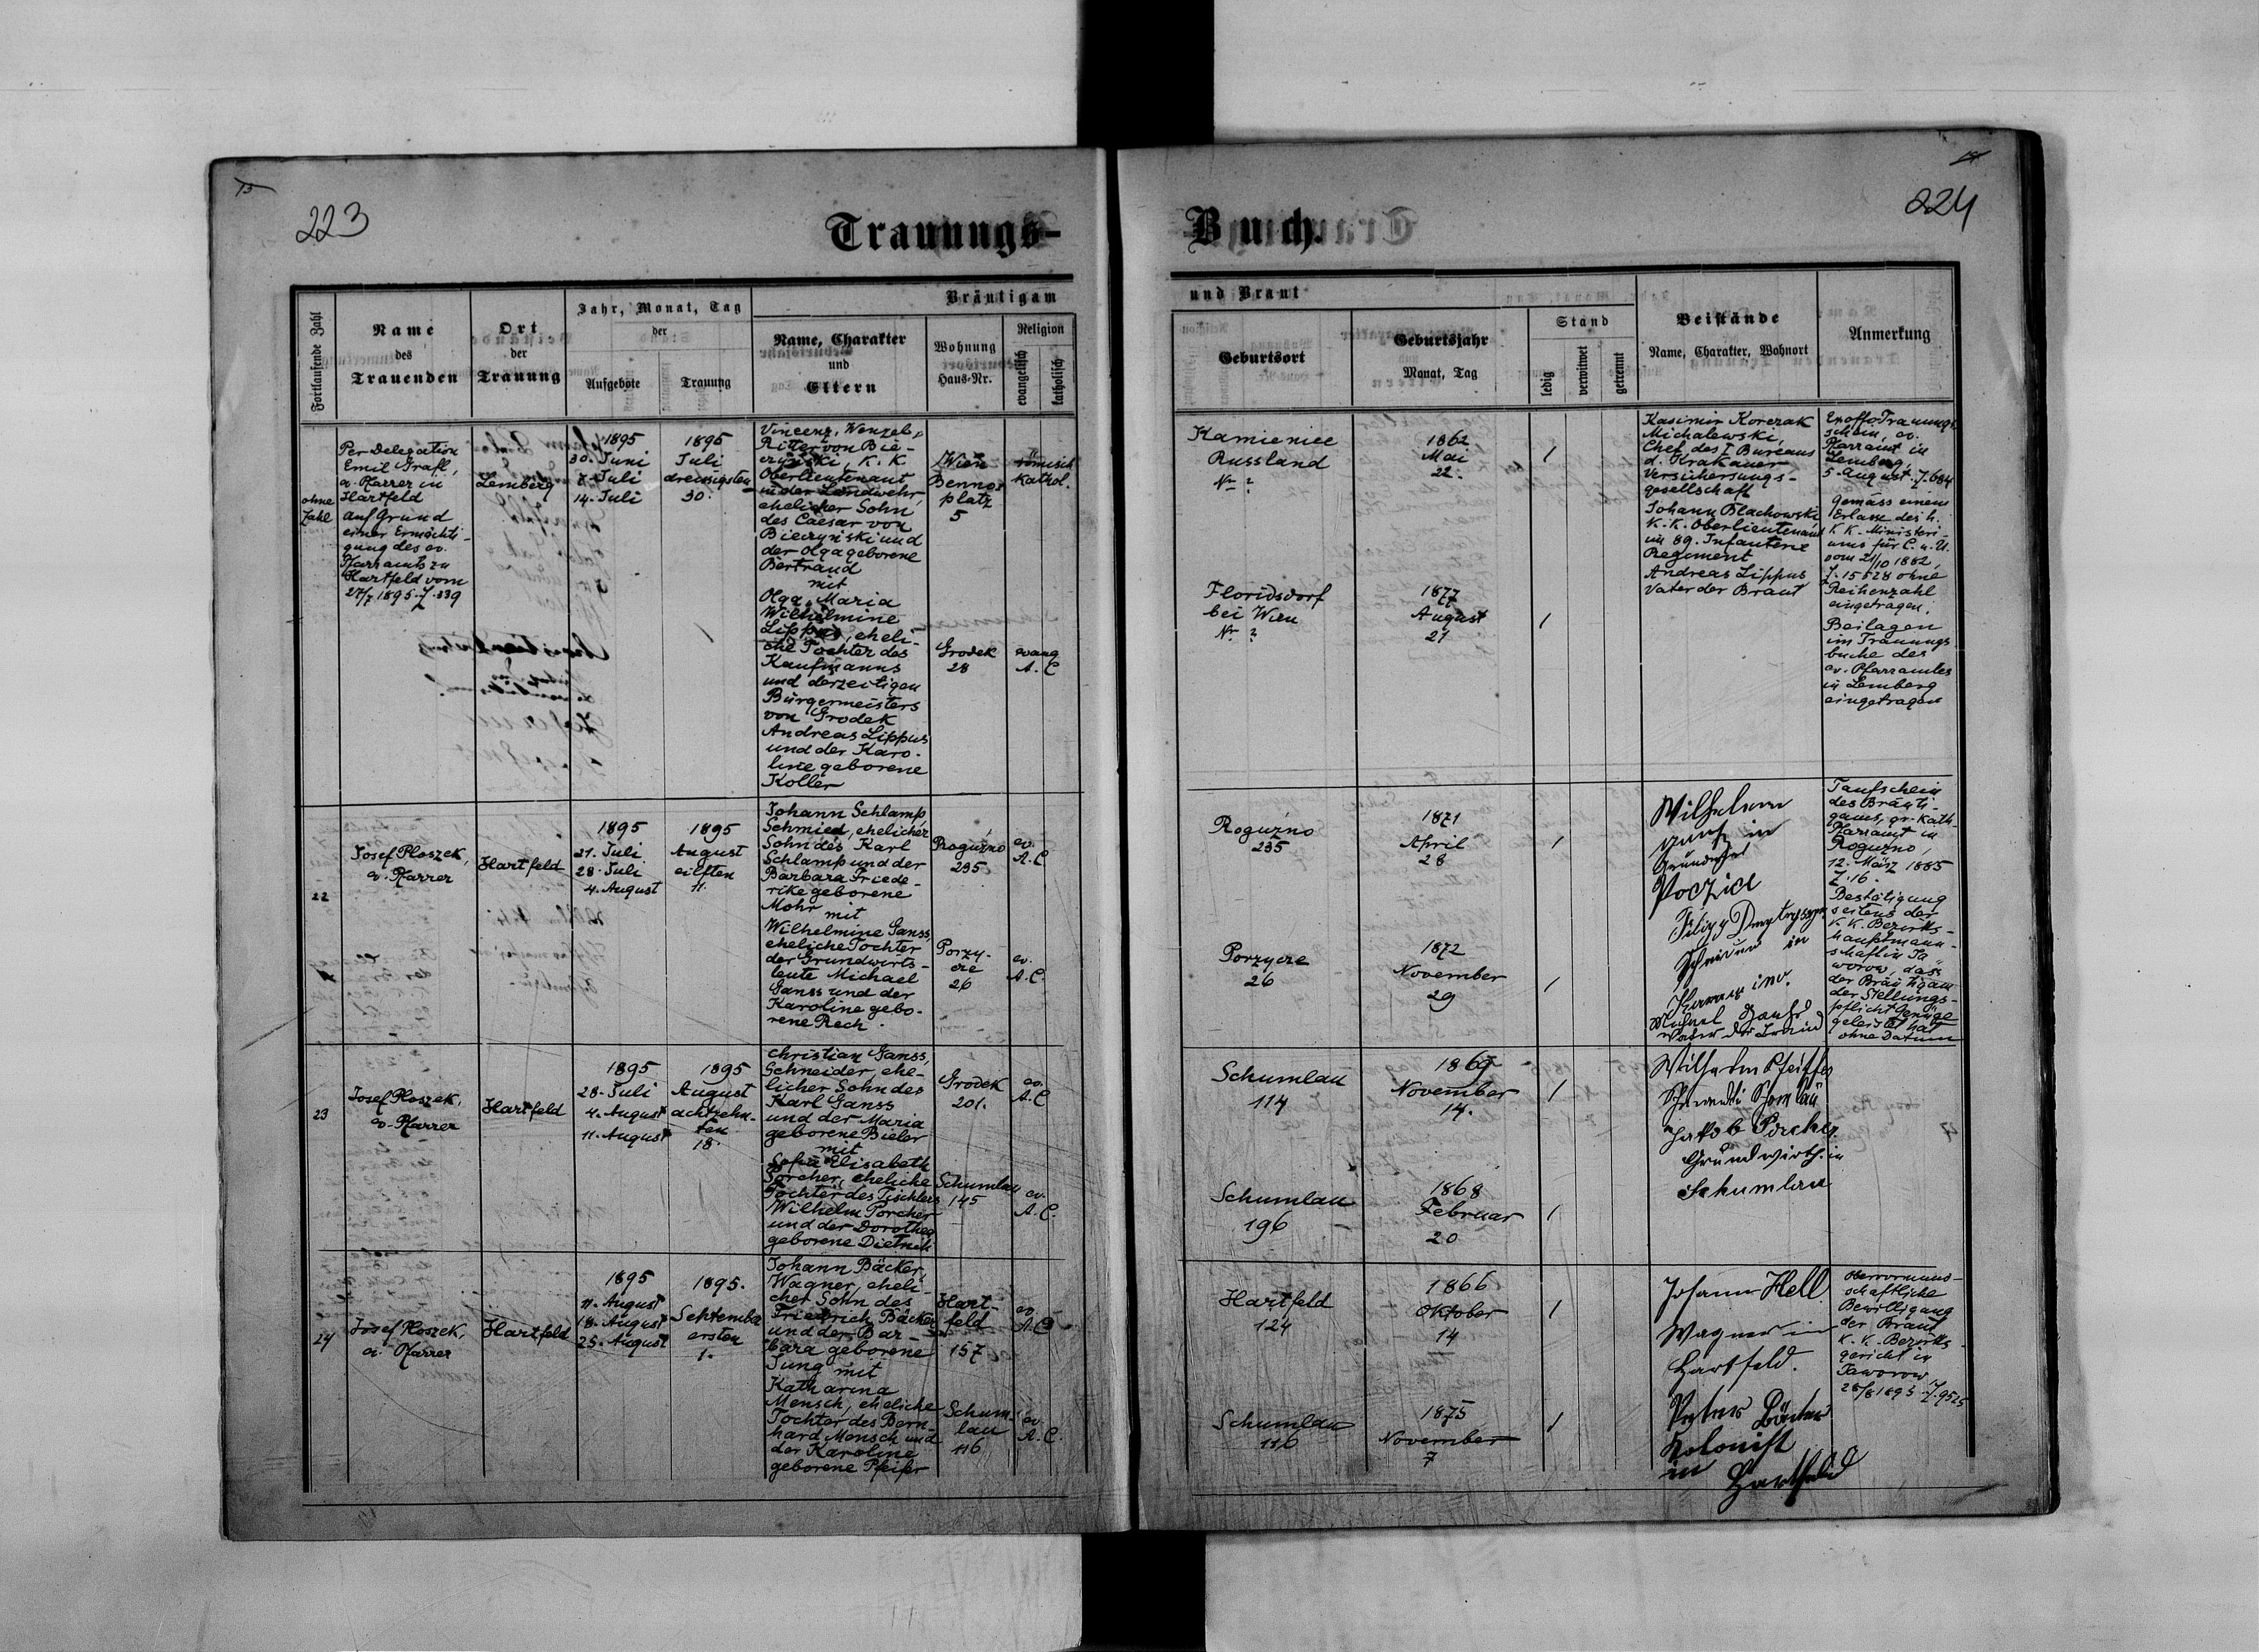 15
223
Trauungs-
Fortlaufende Zahl
Name
des
Trauenden
Ort
der
Trauung
Jahr, Monat, Tag
der
Aufgebote
Trauung
Bräutigam
Name, Charakter
und
Eltern
Wohnung
Haus-Nr.
Religion
evangelisch
katholisch
ohne
Zahl
Per Delegation
Emil Grafl,
ev. Pfarrer in
Hartfeld
auf Grund
einer Ermächti-
gung des ev.
Pfarramts zu
Hartfeld vom
27/7 1895 Z. 339
Lemberg
1895
30. Juni
7. Juli
14. Juli
1895
Juli
dreissigsten
30.
Vincenz, Wenzel,
Ritter von Bie-
czyński, K. K.
Oberlieutenant
in der Landwehr,
ehelicher Sohn
des Caesar von
Bieczyński und
der Olga geborene
Bertrand
mit
Olga, Maria
Wilhelmine
Lippus, eheli-
che Tochter des
Kaufmanns
und derzeitigen
Bürgermeisters
von Grodek
Andreas Lippus
und der Karo-
line geborene
Koller
Wien
Benno-
platz
5
römisch
kathol.
Grodek
28
evang
A. C
22
Josef Ploszek,
ev. Pfarrer
Hartfeld
1895
21. Juli
28. Juli
4. August
1895
August
eilften
11.
Johann Schlamp,
Schmied, ehelicher
Sohn des Karl
Schlamp und der
Barbara Friede-
rike geborene
Mohr mit
Wilhelmine Ganss,
eheliche Tochter
der Grundwirts-
leute Michael
Ganss und der
Karoline gebo-
rene Rech.
Roguźno
235
ev.
A. C
Porzy-
cze
26
ev.
A. C.
23
Josef Ploszek,
ev. Pfarrer
Hartfeld
1895
28. Juli
4. August
11. August
1895
August
achtzehn-
ten
18.
Christian Ganss,
Schneider, ehe-
licher Sohn des
Karl Ganss
und der Maria
geborene Bieler
mit
Sofia Elisabeth
Porcher, eheliche
Tochter des Tischlers
Wilhelm Porcher
und der Dorothea
geborene Dietrich
Grodek
201.
ev.
A. C
Schumlau
145
ev.
A. C.
24
Josef Ploszek,
ev. Pfarrer
Hartfeld
1895
11. August
18. August
25. August
1895.
September
ersten
1.
Johann Bäcker,
Wagner, eheli-
cher Sohn des
Friedrich Bäcker
und der Bar-
bara geborene
Jung mit
Katharina
Mensch, eheliche
Tochter des Bern-
hard Mensch und
der Karoline
geborene Pfeifer
Hart-
feld
157
ev.
A. C
Schum-
lau
116
ev.
A. C.
224
Buch.
und Braut
Geburtsort
Geburtsjahr
Monat, Tag
Stand
ledig
verwitwet
getrennt
Beistände
Name, Charakter, Wohnort
Anmerkung
Kamieniec
Russland
Nr ?
1862
Mai
22.
Floridsdorf
bei Wien
Nr ?
1877
August
21
Kasimir Korczak
Michalewski,
Chef des I Bureaus
d. Krakauer
Versicherungs-
gesellschaft
Johann Blachowski
K. K. Oberlieutenant
im 89. Infanterie
Regiment
Andreas Lippus
Vater der Braut
Ex offo Trauungs
schein, ev.
Pfarramt in
Lemberg,
5 August Z. 684
gemäss einem
Erlasse des h.
K K. Ministeri-
ums für C. u. U.
vom 21/10 1882,
Z. 15528 ohne
Reihenzahl
eingetragen.
Beilagen
im Trauungs
buche des
ev. Pfarramtes
in Lemberg
eingetragen
Roguźno
235
1871
April
28
Porzycze
26
1872
November
29
Wilhelm
in
Michael
Vater der Braut
Taufschein
des Bräuti-
gams, gr. Kath-
Pfarramt in
Roguzno,
12. März 1885
Z. 16.
Bestätigung
seitens der
K. K. Bezirks-
hauptmann-
schaft in Ja-
worow, dass
der Bräutigam
der Stellungs-
pflicht Genüge
geleistet hat
ohne Datum
Schumlau
114
1869
November
14.
Schumlau
196
1868
Februar
20
Wilhelm Pfeiffer
Jakob Porcher
Grundwirth in
Schumlau
Hartfeld
124
1866
Oktober
14
Schumlau
116
1875
November
7
Johann Hell
Wagner in
Hartfeld.
Peter Bäcker
Kolonist
in
Hartfeld
Obervormund-
schaftliche
Bewilligung
der Braut
K. K. Bezirks-
gericht in
Jaworow
28/8 1895 Z. 9525